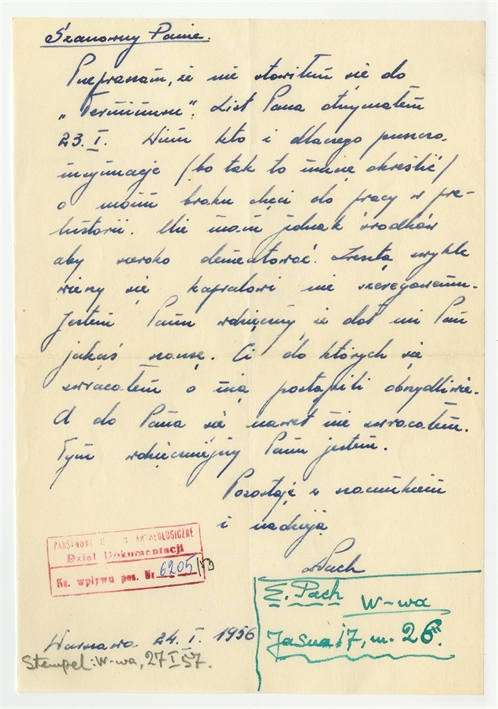 Szanowny Panie.
Przepraszam, że nie stawiłem się do
„Terminusu". List Pana otrzymałem
23.I. Wiem kto i dlaczego puszcza
insynuacje / bo tak to muszę określić /
o moim braku chęci do pracy w pre-
historii. Nie mam jednak środków
aby szeroko dementować. Zresztą zwykle
wierzy się kapralowi nie szeregowemu.
Jestem Panu wdzięczny że dał mi Pan
jakąś szansę. Ci do których się
zwracałem o nią postąpili obrzydliwie.
A do Pana się nawet nie zwracałem.
Tym wdzięczniejszy Panu jestem.
Pozostaję z szacunkiem
i nadzieją
EPach
PAŃSTWOWE ARCHEOLOGICZNE
Dział Dokumentacji
Ks. wpływu poz. Nr 6205/
E. Pach
W-wa
Jasna 17, m. 26.
Warszawa 24.I.1956
Stempel: W-wa, 27 I 57.